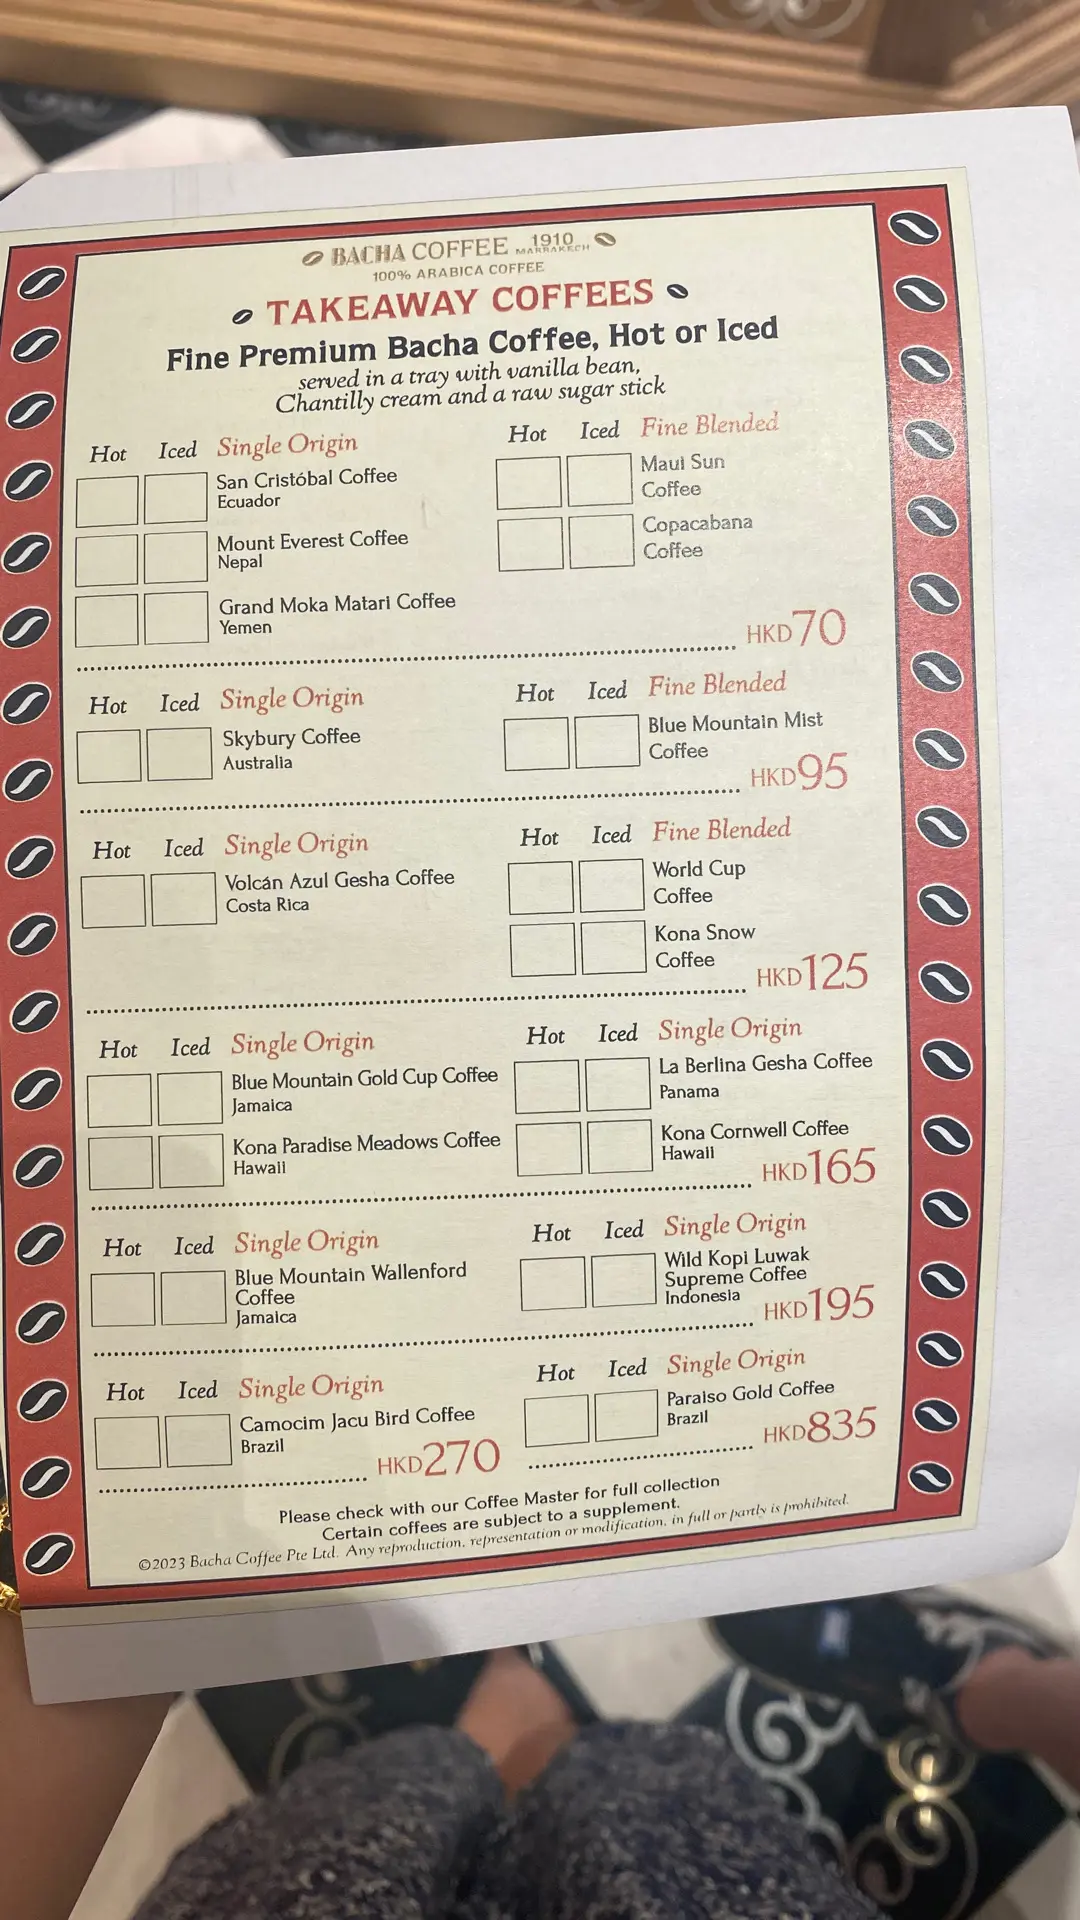 BACHA COFFEE 1910 MARRAKECH
100% ARABICA COFFEE
TAKEAWAY COFFEES
Fine Premium Bacha Coffee, Hot or Iced
served in a tray with vanilla bean,
Chantilly cream and a raw sugar stick
Hot Iced Single Origin
San Cristóbal Coffee
Ecuador
Mount Everest Coffee
Nepal
Grand Moka Matari Coffee
Yemen
Hot Iced Fine Blended
Maui Sun
Coffee
Copacabana
Coffee
HKD70
Hot Iced Single Origin
Skybury Coffee
Australia
Hot Iced Fine Blended
Blue Mountain Mist
Coffee
HKD95
Hot Iced Single Origin
Volcán Azul Gesha Coffee
Costa Rica
Hot Iced Fine Blended
World Cup
Coffee
Kona Snow
Coffee
HKD125
Hot Iced Single Origin
Blue Mountain Gold Cup Coffee
Jamaica
Kona Paradise Meadows Coffee
Hawaii
Hot Iced Single Origin
La Berlina Gesha Coffee
Panama
Kona Cornwell Coffee
Hawaii
HKD165
Hot Iced Single Origin
Blue Mountain Wallenford
Coffee
Jamaica
Hot Iced Single Origin
Wild Kopi Luwak
Supreme Coffee
Indonesia
HKD195
Hot Iced Single Origin
Camocim Jacu Bird Coffee
Brazil
HKD270
Hot Iced Single Origin
Paraiso Gold Coffee
Brazil
HKD835
Please check with our Coffee Master for full collection
Certain coffees are subject to a supplement.
©2023 Bacha Coffee Pte Ltd. Any reproduction, representation or modification, in full or partly is prohibited.